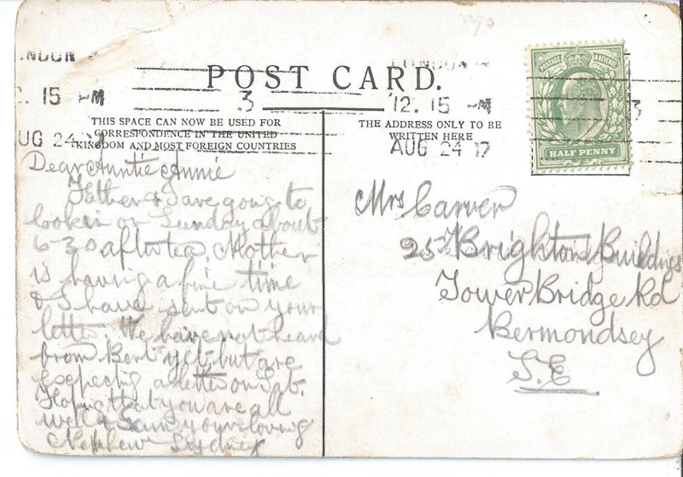 LONDON
12. 15 PM
AUG 24 12
3
POST CARD.
THIS SPACE CAN NOW BE USED FOR
CORRESPONDENCE IN THE UNITED
KINGDOM AND MOST FOREIGN COUNTRIES
THE ADDRESS ONLY TO BE
WRITTEN HERE
POSTAGE
HALF PENNY
Dear Auntie Annie
Father & I are going to
look in on Sunday about
6-30 after tea, Mother
is having a fine time
& I have sent on your
letter. We have not heard
from Bert yet but are
expecting a letter on Sat.
Hoping that you are all
well I am your loving
Nephew Sydney
Mrs Carver
25 Brighton Buildings
Tower Bridge Rd
Bermondsey
S.E